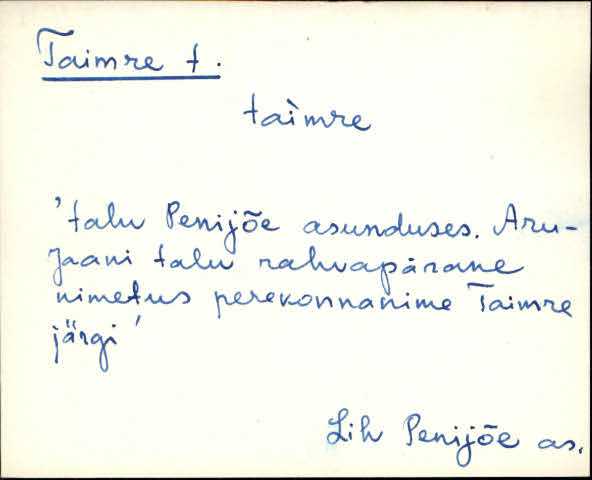 Taimre t.
taìmre
'talu Penijõe asunduses. Aru-
Jaani talu rahvapärane
nimetus perekonnanime Taimre
järgi'
Lih Penijõe as.